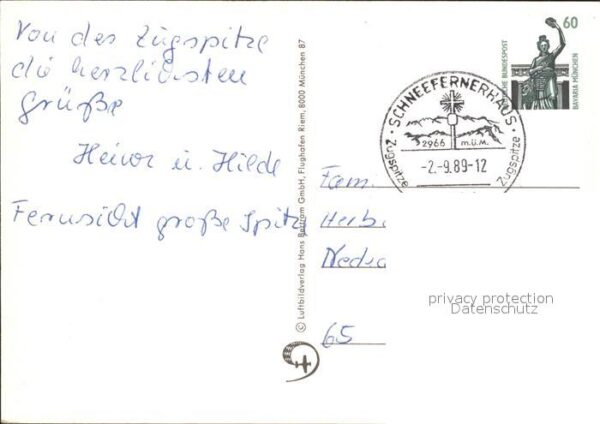 Von der Zugspitze
die herzlichsten
Grüße
Heinor u. Hilde
Fernsicht große Spitz
© Luftbildverlag Hans Bertram GmbH, Flughafen Riem, 8000 München 87
60
DEUTSCHE BUNDESPOST
BAVARIA MÜNCHEN
· SCHNEEFERNERHAUS ·
2966 m.ü.M.
Zugspitze
-2.-9.89-12
Zugspitze
Fam.
Herb
Neds
65
privacy protection
Datenschutz